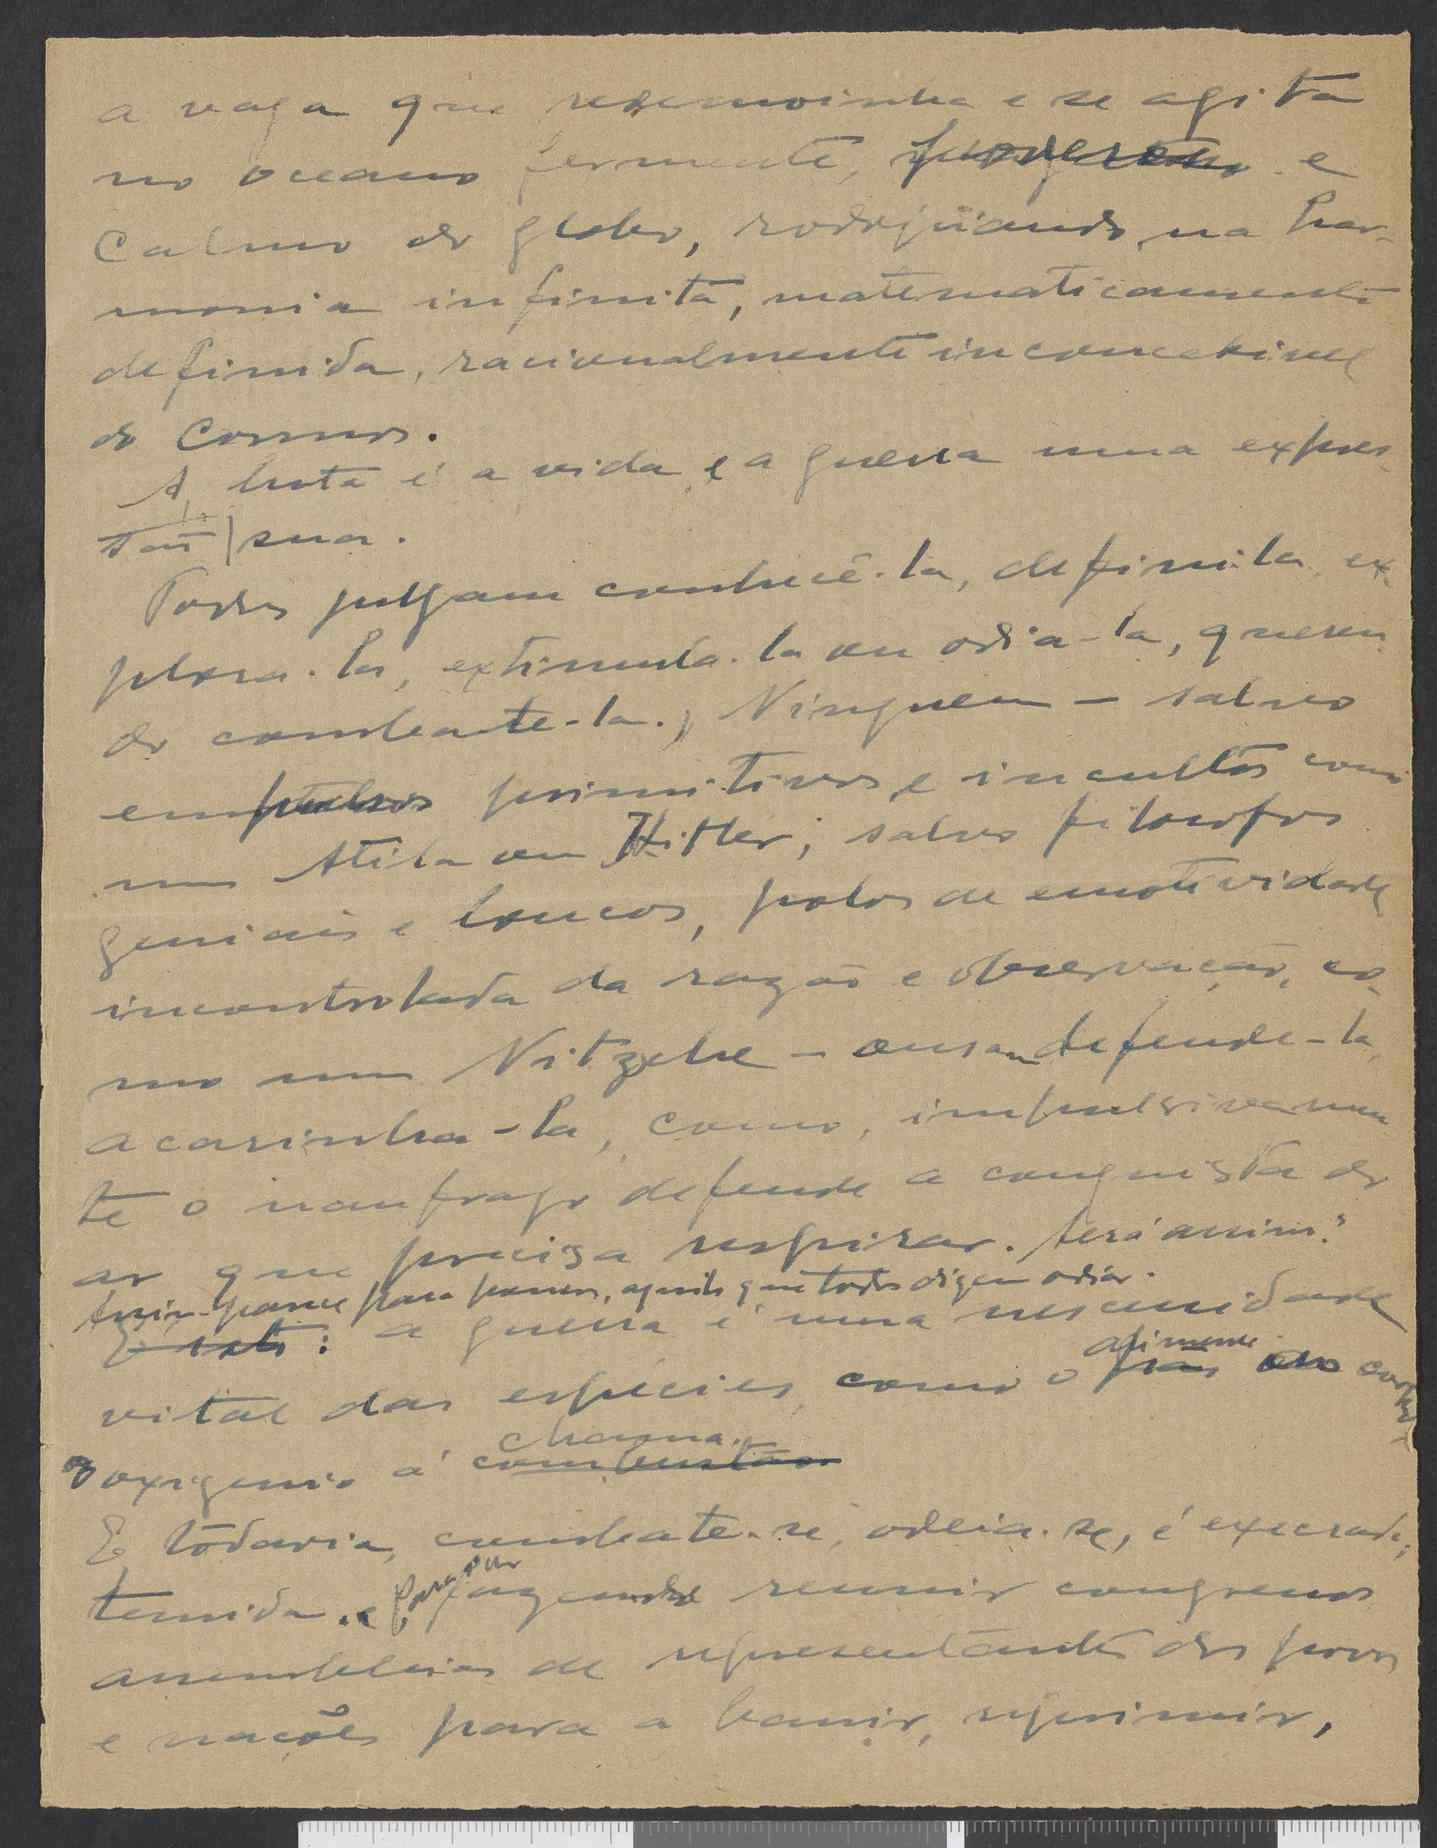 a vaga que redemoinha e se agita
no oceano fermente, e
calmo do globo, rodopiando, na har-
monia infinita, matematicamente
definida, racionalmente inconcebivel
do Cosmos.
A luta é a vida e a guerra uma expres-
são sua.
Todos julgam conhecê-la, defini-la, ex-
plora-la, extimula-la ou odia-la, queren-
do combate-la. Ninguem — salvo
em primitivos e incultos como
um Atila ou Hitler; salvo filosofos
geniais e loucos, polos de emotividade
incontrolada da razão e observação, co-
mo um Nitzche — ousam defende-la,
acarinha-la, como, impulsivamen-
te o naufrago defende a conquista do
ar que precisa respirar. Será assim?
para poucos, aquilo que todos dizem odiar.
É isto: a guerra é uma nescessidade
alimento
vital das espécies como o pão ao corpo,
chama.
o oxigenio á combustão
E tôdavia, combate-se, odeia-se, é execrada,
temida. e fazendo reunir congressos
assembleias de representantes dos povos
e nações para a banir, reprimir,